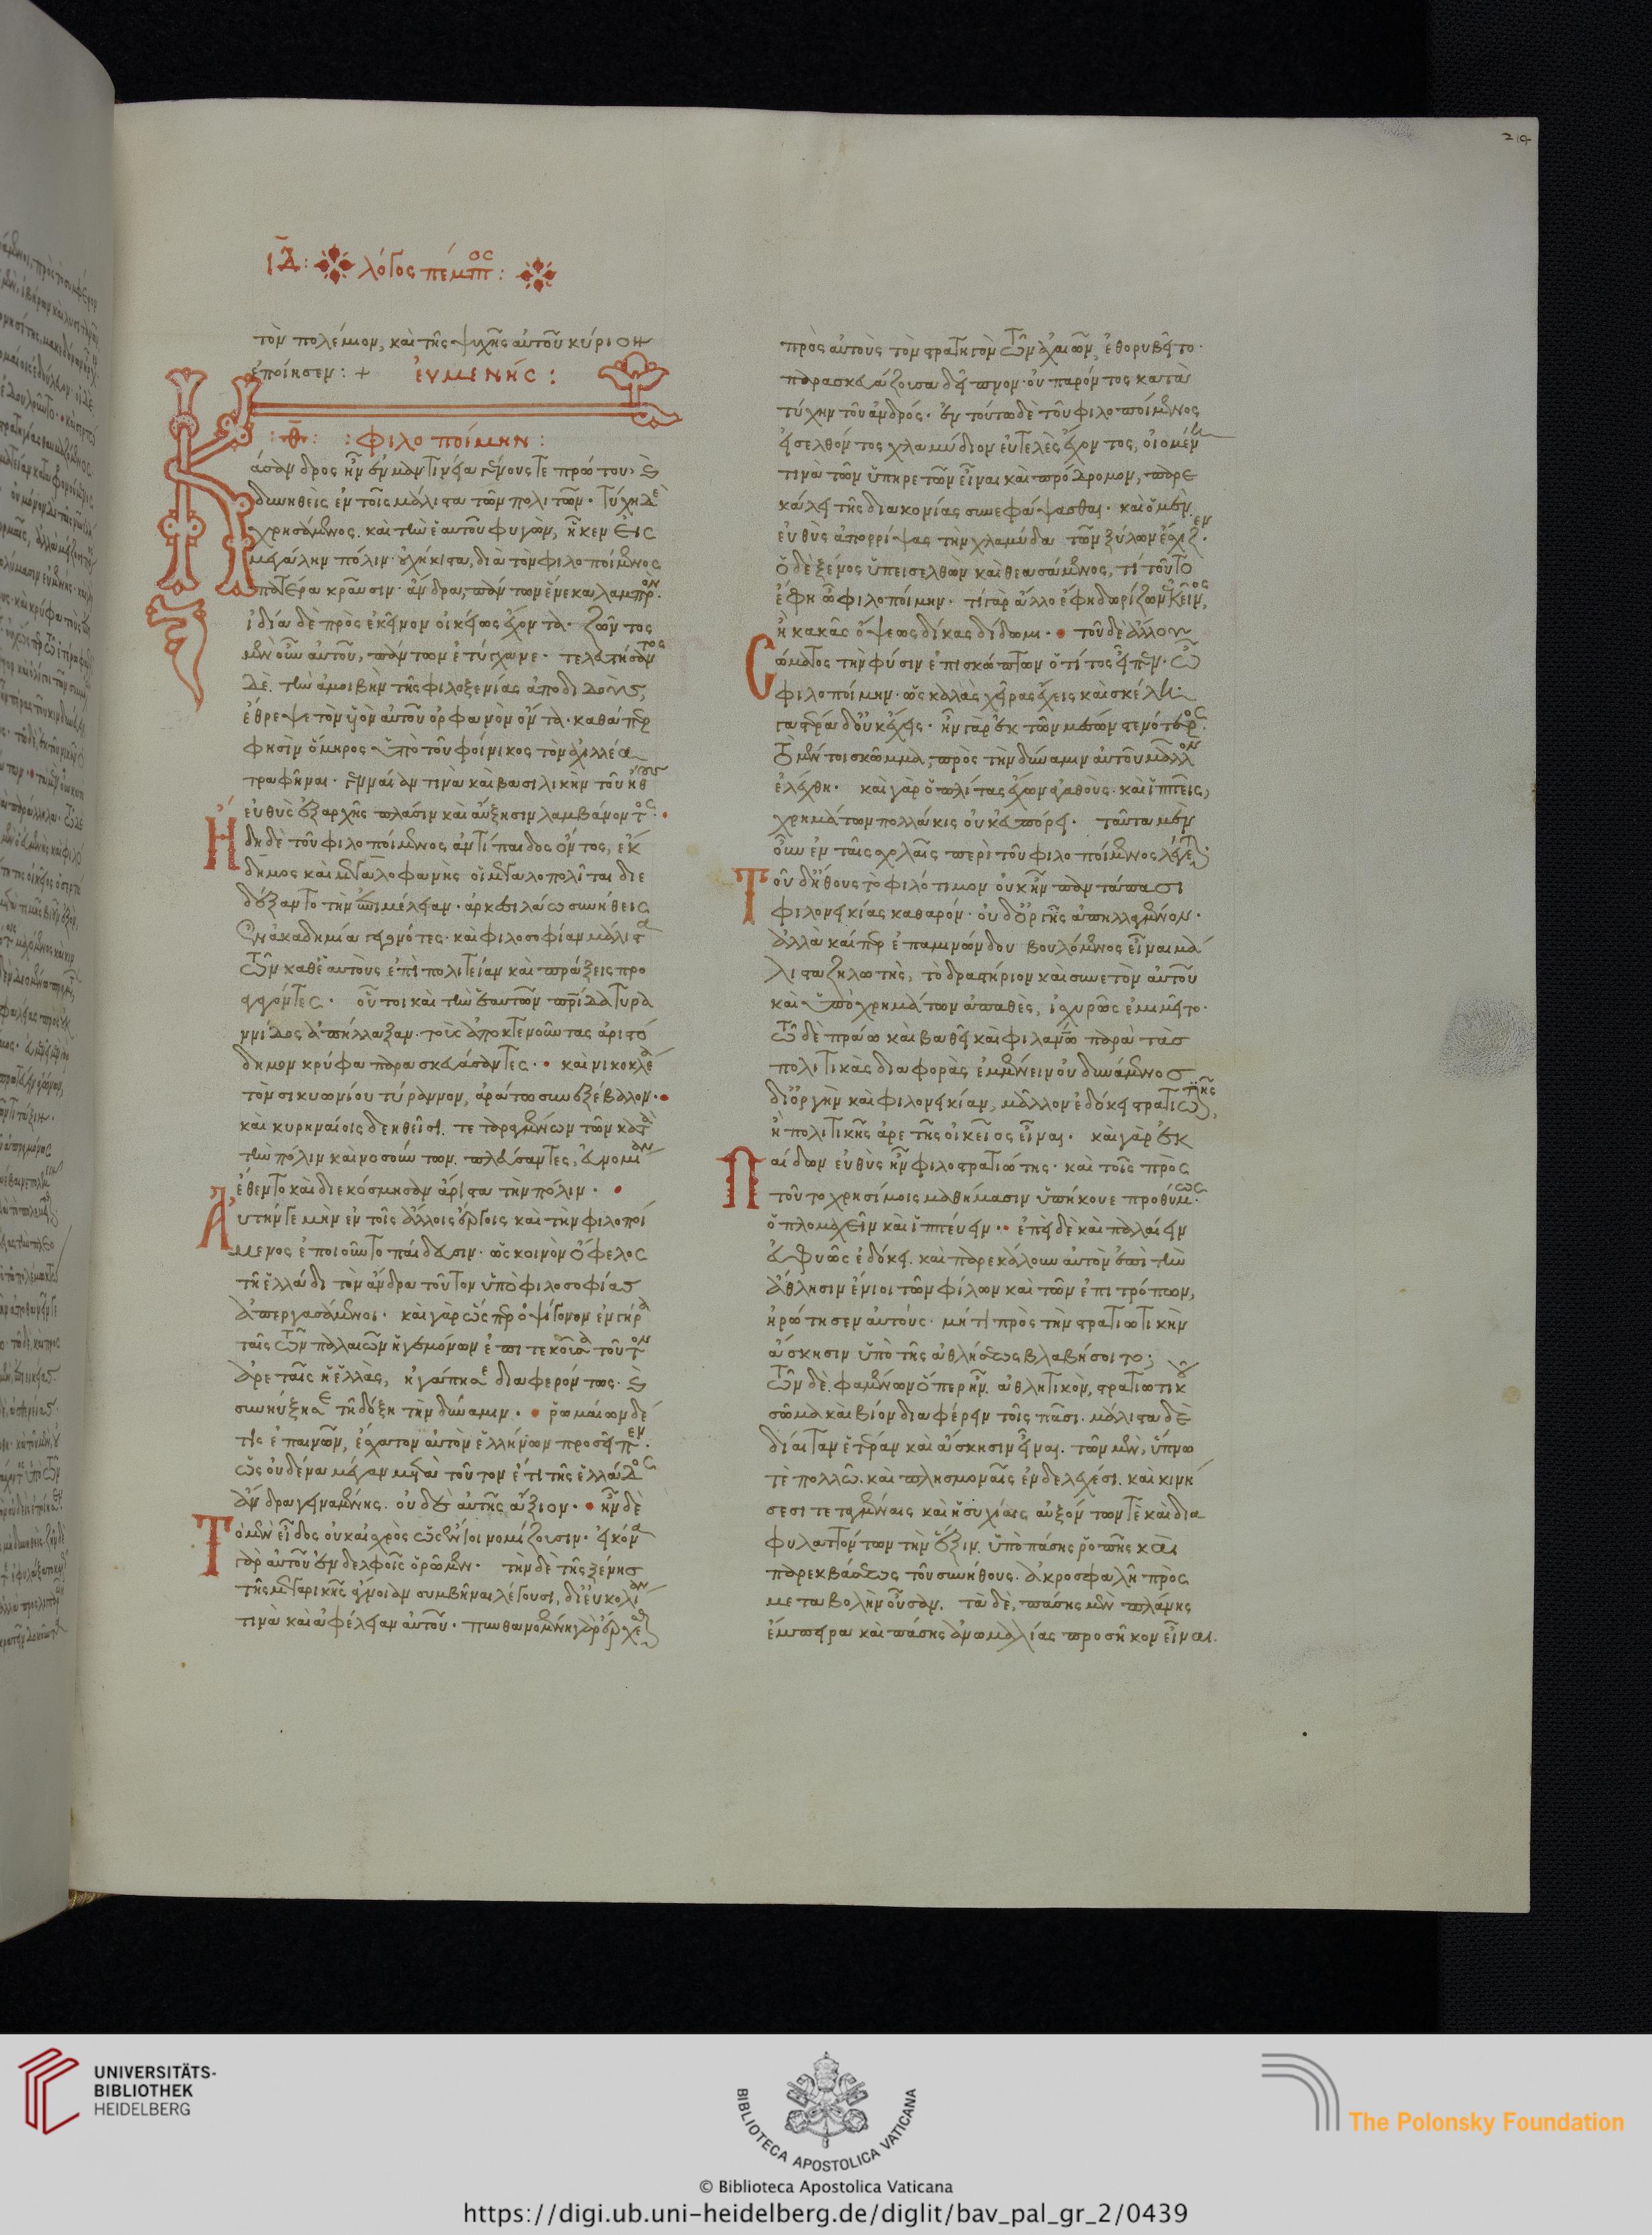 ΙΔ: λόγος πέμπτος:
214
τὸν πολέμιον, καὶ τῆς ψυχῆς αὐτοῦ κύριον
ἐποίησεν : + ἐυμένης :
: φιλοποίμην :
Κάσανδρος ἦν ἐν μαντινεία γένους τε πρώτου, καὶ
δυνηθεὶς ἐν τοῖς μάλιστα τῶν πολιτῶν. τύχη δὲ
χρησάμενος. καὶ τὴν ἑαυτοῦ φυγὼν, ἧκεν εἰς
μεγάλην πόλιν. οὐχήκιστα, διὰ τὸν φιλοποίμενος
πατέρα κραῦσιν. ἄνδρα, πάντων ἕνεκα λαμπρὸν.
ἰδία δὲ πρὸς ἐκεῖνον οἰκείως ἔχοντα. ζῶντος
μὲν οὖν αὐτοῦ, πάντων ἐτύγχανε. τελευτήσαντος
δὲ. τὴν ἀμοιβὴν τῆς φιλοξενίας ἀποδιδοὺς,
ἔθρεψε τὸν υἱὸν αὐτοῦ ὀρφανὸν ὄντα. καθάπερ
φησὶν ὅμηρος ὑπὸ τοῦ φοίνικος τὸν ἀχιλλέα
τραφῆναι. γενναίαν τινὰ καὶ βασιλικὴν τοῦ ἤθους
εὐθὺς ἐξαρχῆς πλάσιν καὶ αὔξησιν λαμβάνοντος.
Ἤδη δὲ τοῦ φιλοποίμενος ἀντίπαιδος ὄντος, ἔκ
δημος καὶ μεγαλοφάνης οἱ μεγαλοπολῖται διε
δέξαντο τὴν ἐπιμέλειαν. ἀρκεσιλάω συνήθεις
ἐν ἀκαδημία γεγονότες. καὶ φιλοσοφίαν μάλιστα
τῶν καθ' ἑαυτοὺς ἐπὶ πολιτείαν καὶ πράξεις προ
αγαγόντες. οὗτοι καὶ τὴν ἑαυτῶν πατρίδα τυρα
ννίδος ἀπήλλαξαν. τοὺς ἀποκτενοῦντας ἀριστό
δημον κρύφα παρασκευάσαντες. καὶ νικοκλέα
τὸν σικυωνίου τύραννον, ἀράτω συνεξέβαλον.
καὶ κυρηναίοις δεηθεῖσι. τεταραγμένων τῶν κατὰ
τὴν πόλιν καὶ νοσούντων. πλεύσαντες, εὐνομίαν
ἔθεντο καὶ διεκόσμησαν ἄριστα τὴν πόλιν.
Αὐτήν γε μὴν ἐν τοῖς ἄλλοις ἔργοις καὶ τὴν φιλοποί
μενος ἐποιοῦντο παίδευσιν. ὡς κοινὸν ὄφελος
τῆ ἑλλάδι τὸν ἄνδρα τοῦτον ὑπὸ φιλοσοφίας
ἀπεργασάμενοι. καὶ γὰρ ὥσπερ ὀψίγονον ἐν γήρα
ταῖς τῶν παλαιῶν ἡγεμόνων ἐπιτεκοῦσα τοῦτον
ἀρεταῖς ἡ ἑλλὰς, ἠγάπησε διαφερόντως. καὶ
συνηύξησε τῆ δόξη τὴν δύναμιν. ῥωμαίων δέ
τις ἐπαινῶν, ἔσχατον αὐτὸν ἑλλήνων προσεῖπεν.
ὡς οὐδένα μέγαν μετὰ τοῦτον ἔτι τῆς ἑλλάδος
ἄνδρα γειναμένης. οὐδὲ αὐτῆς ἄξιον. ἦν δὲ
Τὸ μὲν εἶδος οὐκ αἰσχρὸς ὡς ἔνιοι νομίζουσιν. εἰκόνα
γὰρ αὐτοῦ ἐν δελφοῖς ὁρῶμεν. τὴν δὲ τῆς ξένης
τῆς μεγαρικῆς ἄγνοιαν συμβῆναι λέγουσι, δι' εὐκολίαν
τινὰ καὶ ἀφέλειαν αὐτοῦ. πυνθανομένη γὰρ ἔρχεσθαι
πρὸς αὐτοὺς τὸν στρατηγὸν τῶν ἀχαιῶν, ἐθορυβεῖτο.
παρασκευάζουσα δεῖπνον. οὐ παρόντος κατὰ
τύχην τοῦ ἀνδρός. ἐν τούτω δὲ τοῦ φιλοποίμενος
εἰσελθόντος χλαμύδιον εὐτελὲς ἔχοντος, οἰομένη
τινὰ τῶν ὑπηρετῶν εἶναι καὶ πρόδρομον, παρε
κάλει τῆς διακονίας συνεφάψασθαι. καὶ ὁ μὲν
εὐθὺς ἀπορρίψας τὴν χλαμύδα τῶν ξύλων ἔσχιζεν.
ὁ δὲ ξένος ὑπεισελθὼν καὶ θεασάμενος, τί τοῦτο
ἔφη ὦ φιλοποίμην. τί γὰρ ἄλλο ἔφη δωρίζων ἐκεῖνος,
ἢ κακᾶς ὄψεως δίκας δίδωμι. τοῦ δὲ ἄλλου
Σώματος τὴν φύσιν ἐπισκώπτων ὁ τίτος εἶπεν. ὦ
φιλοποίμην. ὡς καλὰς χεῖρας ἔχεις καὶ σκέλη.
γαστέρα δ' οὐκ ἔχεις. ἦν γὰρ ἐκ τῶν μέσων στενότερος.
τὸ μέντοι σκῶμμα, πρὸς τὴν δύναμιν αὐτοῦ μᾶλλον
ἐλέχθη. καὶ γὰρ ὁπλίτας ἔχων ἀγαθοὺς. καὶ ἱππεῖς,
χρημάτων πολλάκις οὐκ εὐπόρει. ταῦτα μὲν
οὖν ἐν ταῖς σχολαῖς περὶ τοῦ φιλοποίμενος λέγεται.
Τοῦ δ' ἤθους τὸ φιλότιμον οὐκ ἦν παντάπασι
φιλονεικίας καθαρόν. οὐδ' ὀργῆς ἀπηλλαγμένον.
ἀλλὰ καίπερ ἐπαμινώνδου βουλόμενος εἶναι μά
λιστα ζηλωτὴς, τὸ δραστήριον καὶ συνετὸν αὐτοῦ
καὶ ὑπὸ χρημάτων ἀπαθὲς, ἰσχυρῶς ἐμιμεῖτο.
τῶ δὲ πράω καὶ βαθεῖ καὶ φιλανθρώπω παρὰ τὰς
πολιτικὰς διαφορὰς ἐμμένειν οὐ δυνάμενος
δι' ὀργὴν καὶ φιλονεικίαν, μᾶλλον ἐδόκει στρατιωτικῆς,
ἢ πολιτικῆς ἀρετῆς οἰκεῖος εἶναι. καὶ γὰρ ἐκ
Παίδων εὐθὺς ἦν φιλοστρατιώτης. καὶ τοῖς πρὸς
τοῦτο χρησίμοις μαθήμασιν ὑπήκουε προθύμως.
ὁπλομαχεῖν καὶ ἱππεύειν. ἐπεὶ δὲ καὶ παλαίειν
εὐφυῶς ἐδόκει. καὶ παρεκάλουν αὐτὸν ἐπὶ τὴν
ἄθλησιν ἔνιοι τῶν φίλων καὶ τῶν ἐπιτρόπων,
ἠρώτησεν αὐτούς. μή τι πρὸς τὴν στρατιωτικὴν
ἄσκησιν ὑπὸ τῆς ἀθλήσεως βλαβήσοιτο;
τῶν δὲ. φαμένων ὅπερ ἦν. ἀθλητικὸν, στρατιωτικοῦ
σῶμα καὶ βίον διαφέρειν τοῖς πᾶσι. μάλιστα δὲ
δίαιταν ἑτέραν καὶ ἄσκησιν εἶναι. τῶν μὲν, ὕπνω
τὲ πολλῶ. καὶ πλησμοναῖς ἐνδελεχέσι. καὶ κινή
σεσι τεταγμέναις καὶ ἡσυχίαις αὐξόντων τὲ καὶ δια
φυλαττόντων τὴν ἕξιν. ὑπὸ πάσης ῥοπῆς καὶ
παρεκβάσεως τοῦ συνήθους. ἀκροσφαλῆ πρὸς
μεταβολὴν οὖσαν. τὰ δὲ, πάσης μὲν πλάνης
ἔμπειρα καὶ πάσης ἀνωμαλίας προσῆκον εἶναι.
UNIVERSITÄTS-
BIBLIOTHEK
HEIDELBERG
BIBLIOTECA APOSTOLICA VATICANA
The Polonsky Foundation
© Biblioteca Apostolica Vaticana
https://digi.ub.uni-heidelberg.de/diglit/bav_pal_gr_2/0439